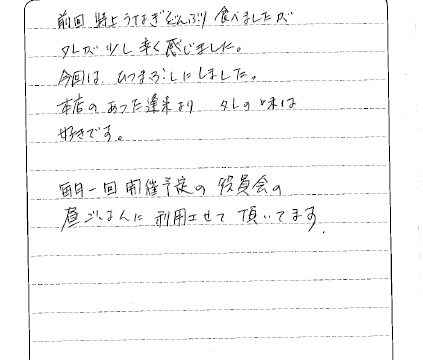 前回 特上うなぎどんぶり 食べましたが
タレが少し辛く感じました。
今回は ひつまぶしにしました。
本店のあった蓮来より タレの味は
好きです。
毎月一回 開催予定の 役員会の
昼ごはんに 利用させて 頂いてます。